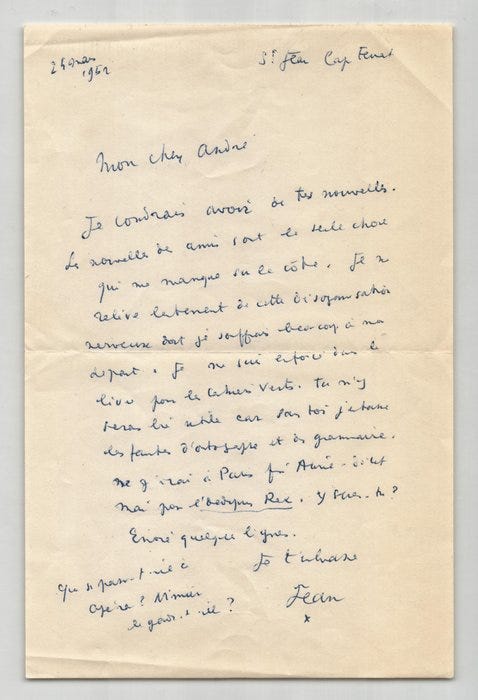 24 mars
1952
St Jean Cap Ferrat
Mon cher André
Je voudrais avoir de tes nouvelles.
Les nouvelles des amis sont la seule chose
qui me manque sur la côte. Je me
relève lentement de cette désorganisation
nerveuse dont je souffrais beaucoup à mon
départ. Je me suis enfoncé dans le
livre pour les cahiers verts. Tu m'y
seras très utile car sans toi j'
les fautes d'orthographe et de grammaire.
Je n'irai à Paris fin
mai pour l'Oedipus Rex. Y seras-tu?
Envoie quelques lignes.
Je t'embrasse
Jean
Que se passe-t-il à
l'Opéra?
le  -t-il?